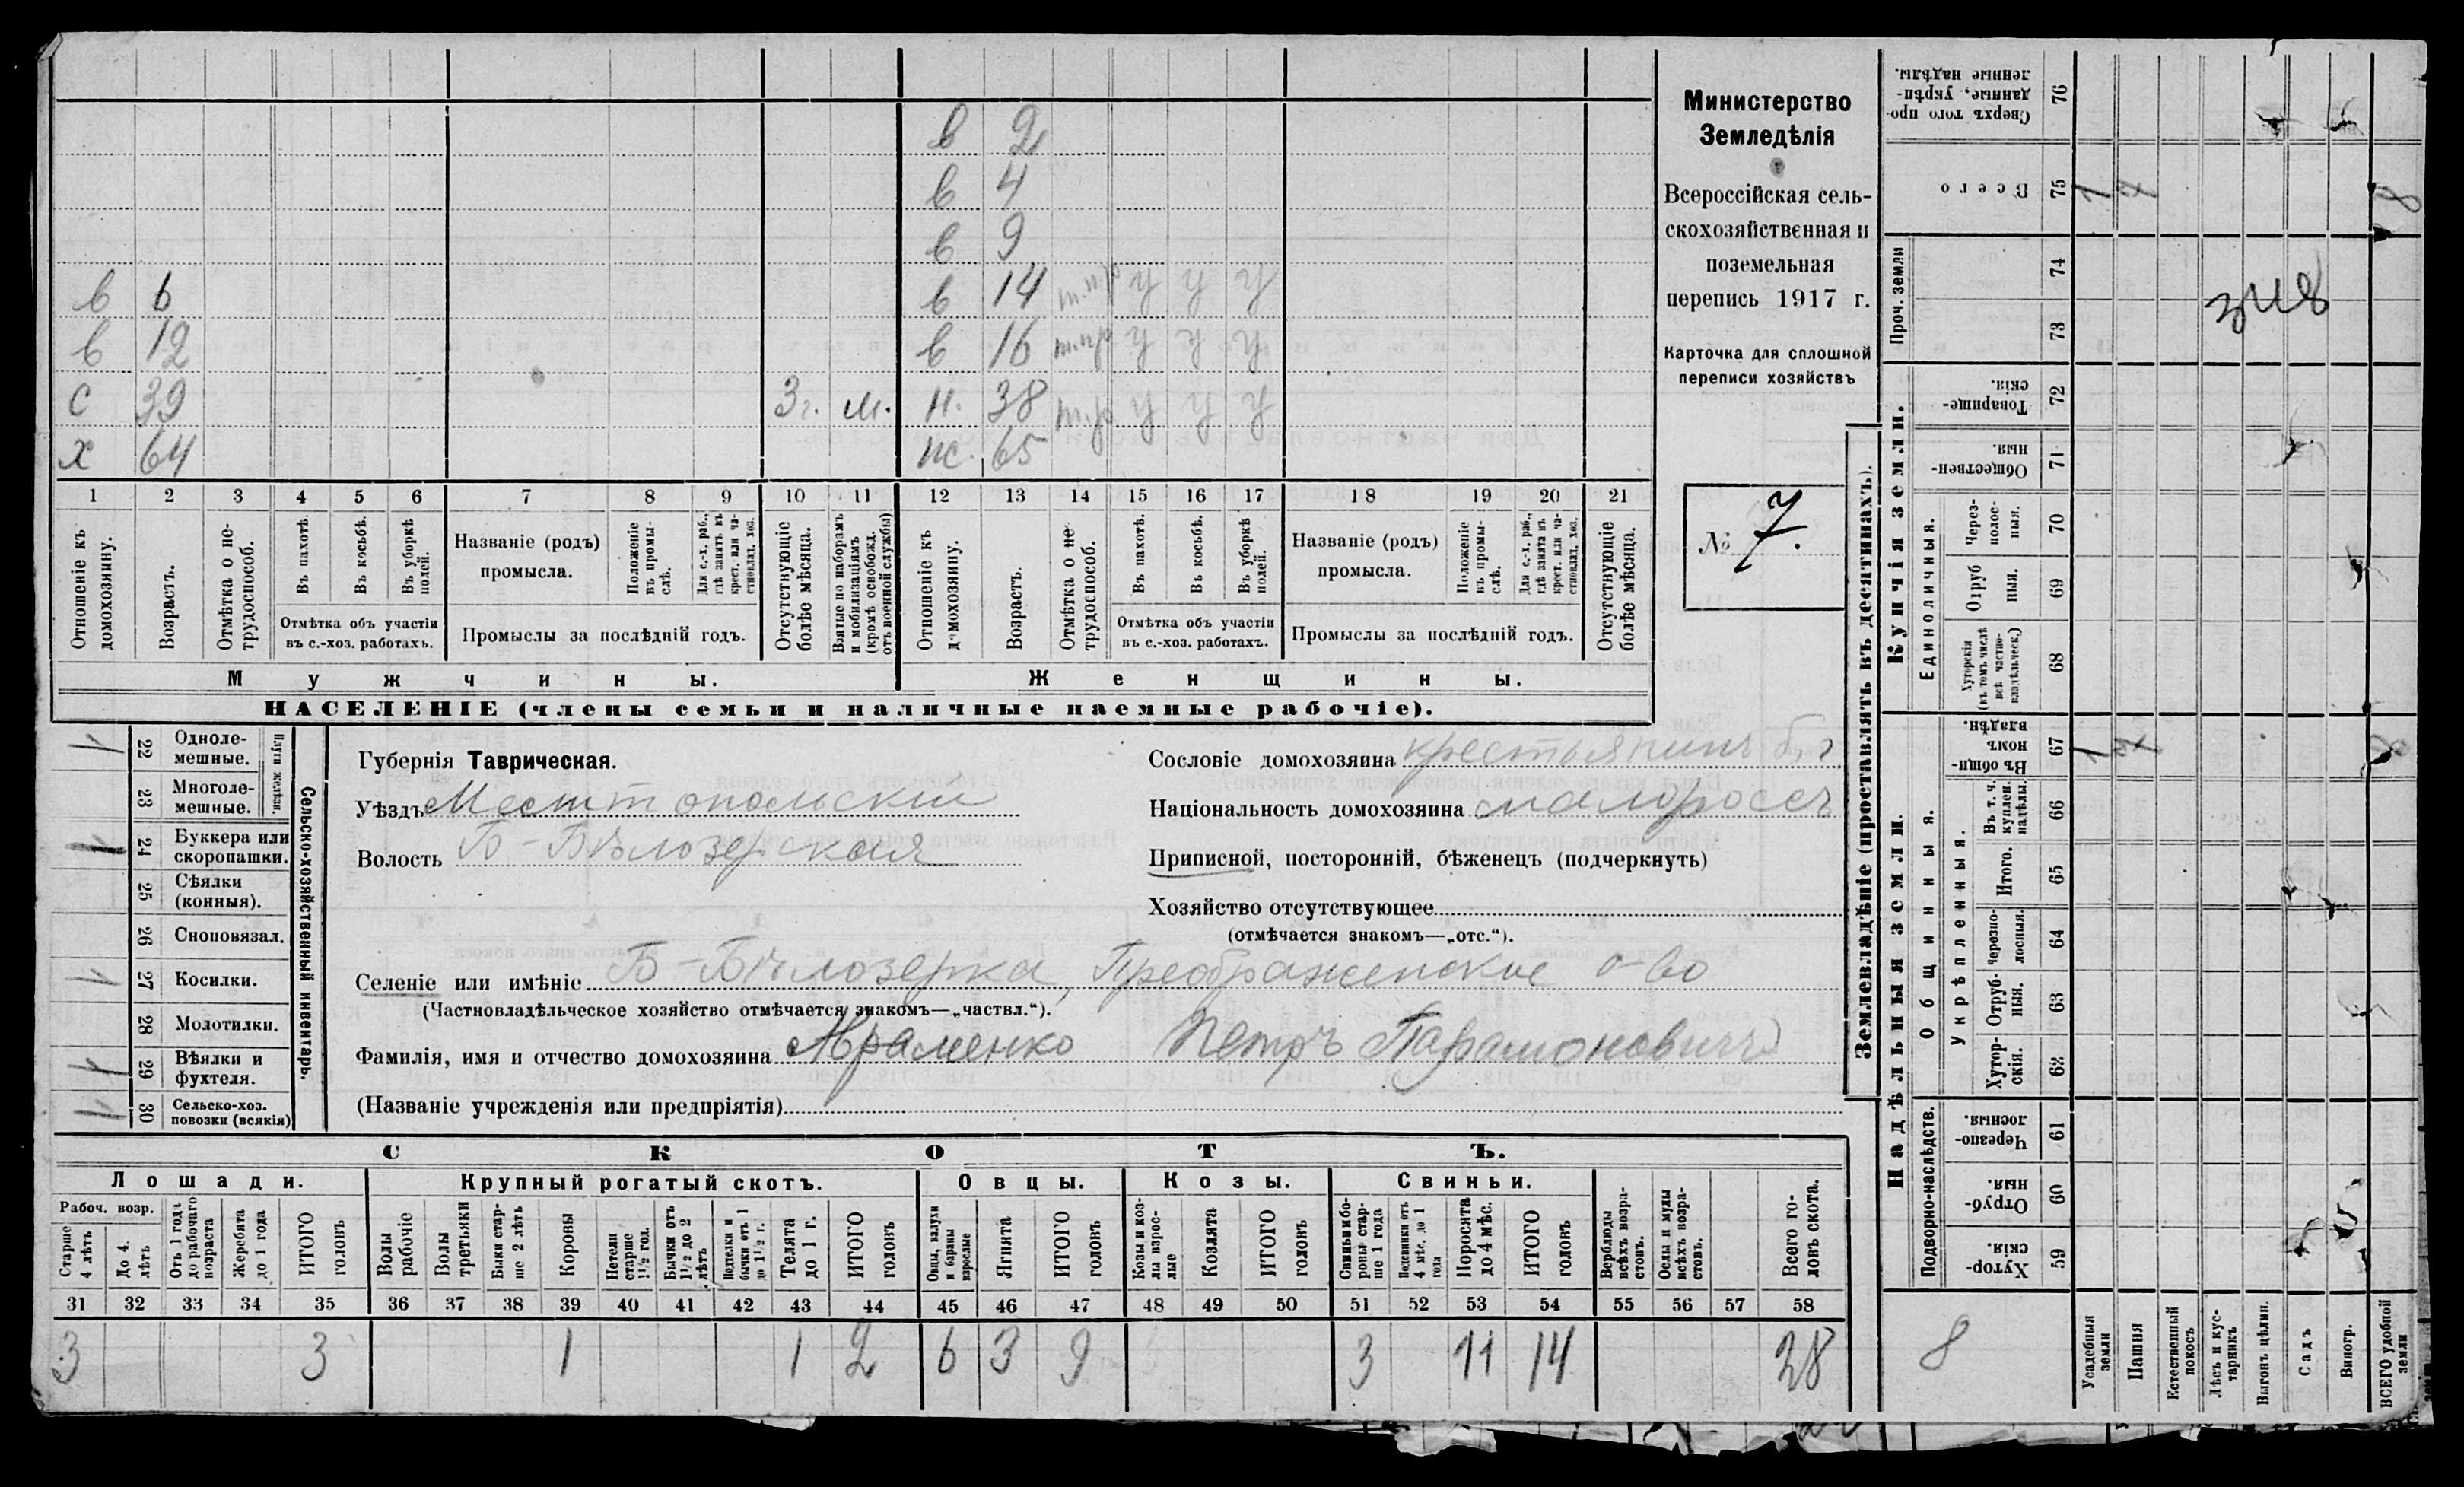 в 2
в 4
в 9
в 6 в 14 т.пр у у у
в 12 в 16 т.пр у у у
с 39 3 г. м. н. 38 т.пр у у у
х 64 ж. 65
1 2 3 4 5 6 7 8 9 10 11 12 13 14 15 16 17 18 19 20 21
Отношеніе къ домохозяину.
Возрастъ.
Отмѣтка о не-трудоспособ.
Въ пахотѣ.
Въ косьбѣ.
Въ уборкѣ полей.
Отмѣтка объ участіи въ с.-хоз. работахъ.
Названіе (родъ) промысла.
Положеніе въ промы-слѣ.
Для с.-х. раб., гдѣ занятъ въ крест. или ча-стновлад. хоз.
Промыслы за послѣдній годъ.
Отсутствующіе болѣе мѣсяца.
Взятые по наборамъ и мобилизаціямъ (кромѣ освобожд. отъ военной службы)
Отношеніе къ домохозяину.
Возрастъ.
Отмѣтка о не-трудоспособ.
Въ пахотѣ.
Въ косьбѣ.
Въ уборкѣ полей.
Отмѣтка объ участіи въ с.-хоз. работахъ.
Названіе (родъ) промысла.
Положеніе въ промы-слѣ.
Для с.-х. раб., гдѣ занята въ крест. или ча-стновлад. хоз.
Промыслы за послѣдній годъ.
Отсутствующіе болѣе мѣсяца.
Мужчины.
Женщины.
НАСЕЛЕНІЕ (члены семьи и наличные наемные рабочіе).
Министерство
Земледѣлія
Всероссійская сель-
скохозяйственная и
поземельная
перепись 1917 г.
Карточка для сплошной
переписи хозяйствъ
№ 7.
1 22 Однолемешные.
23 Многолемешные.
Плуги желѣзн.
1 24 Буккера или скоропашки.
25 Сѣялки (конныя).
26 Сноповязал.
1 27 Косилки.
28 Молотилки.
1 29 Вѣялки и фухтеля.
1 30 Сельско-хоз. повозки (всякія)
Сельско-хозяйственный инвентарь.
Губернія Таврическая.
Уѣздъ Мелитопольскій
Волость Б-Бѣлозерская
Сословіе домохозяина крестьянинъ
Національность домохозяина малороссъ
Приписной, посторонній, бѣженецъ (подчеркнуть)
Хозяйство отсутствующее
(отмѣчается знакомъ—„отс.“).
Селеніе или имѣніе Б-Бѣлозерка, Преображенское о-во
(Частновладѣльческое хозяйство отмѣчается знакомъ—„частвл.“).
Фамилія, имя и отчество домохозяина Авраменко Петръ Парамоновичъ
(Названіе учрежденія или предпріятія)
СКОТЪ.
Лошади. Крупный рогатый скотъ. Овцы. Козы. Свиньи.
Рабоч. возр.
Старше 4 лѣтъ
До 4. лѣтъ
Отъ 1 года до рабочаго возраста
Жеребята до 1 года
ИТОГО головъ
Волы рабочіе
Волы третьяки
Быки стар-ше 2 лѣтъ
Коровы
Нетели старше 1½ год.
Бычки отъ 1½ до 2 лѣтъ
Подтелки и бычки отъ 1 до 1½ г.
Телята до 1 г.
ИТОГО головъ
Овцы, валухи и бараны взрослые
Ягнята
ИТОГО головъ
Козы и коз-лы взрос-лые
Козлята
ИТОГО головъ
Свиньи и бо-ровы стар-ше 1 года
Подсвинки отъ 4 мѣс. до 1 года
Поросята до 4 мѣс.
ИТОГО головъ
Верблюды всѣхъ возра-стовъ.
Ослы и мулы всѣхъ возра-стовъ.
Всего го-ловъ скота.
31 32 33 34 35 36 37 38 39 40 41 42 43 44 45 46 47 48 49 50 51 52 53 54 55 56 57 58
3 3 1 1 2 6 3 9 3 11 14 28
Землевладѣніе (проставлять въ десятинахъ).
Надѣльныя земли.
Купчія земли.
Проч. земли
Подворно-наслѣдств.
Общинныя.
Укрѣпленныя.
Единоличныя.
Сверхъ того про-данные, укрѣп-ленные надѣлы. 76
Всего 75 1 7 8
74
73
Товарище-скія. 72
Обществен-ныя. 71
Через-полос-ныя. 70
Отруб ныя. 69
Хуторскія (въ томъ числѣ всѣ частно-владѣльческ.) 68
Въ общи-номъ владѣн. 67 1 7 8
Въ т. ч. куплен. надѣлы. 66
Итого. 65
Черезпо-лосныя. 64
Отруб-ныя. 63
Хутор-скія. 62
Черезпо-лосныя. 61
Отруб-ныя. 60
Хутор-скія. 59
8
Усадебныя земли
Пашня
Естественный покосъ
Лѣсъ и кус-тарникъ
Выгонъ цѣлин.
Садъ
Виногр.
ВСЕГО удобной земли